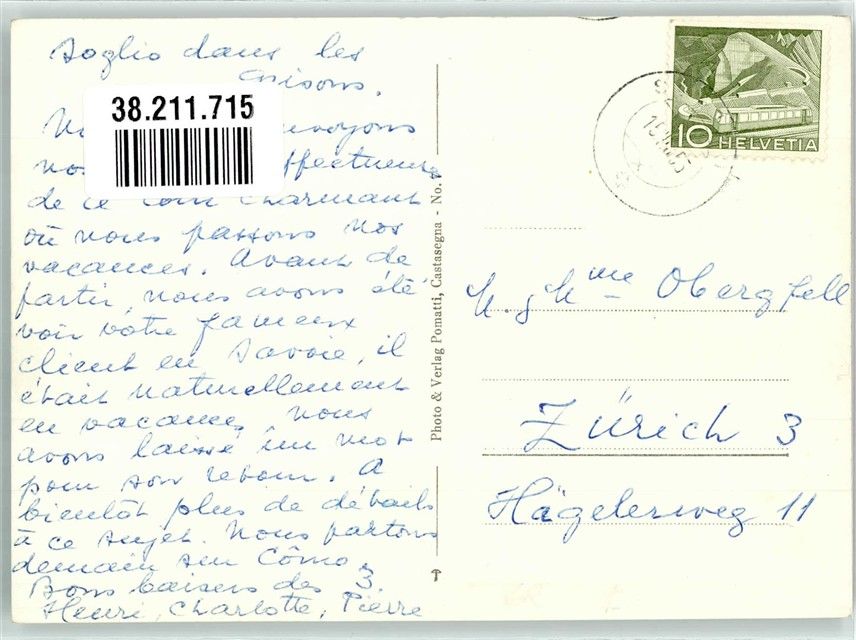 Soglio dans les
Grisons.
38.211.715
envoyons
nos affectueuses
de ce coin charmant
où nous passons nos
vacances. Avant de
partir, nous avons été
voir votre fameux
client en Savoie, il
était naturellement
en vacances, nous
avons laissé un mot
pour son retour. A
bientôt plus de détails
à ce sujet. Nous partons
demain sur Cômo.
Bons baisers des 3.
Henri, Charlotte, Pierre
Photo & Verlag Pomatti, Castasegna - No.
10 HELVETIA
M. & Mme Obergfell
Zürich 3
Hägelerweg 11